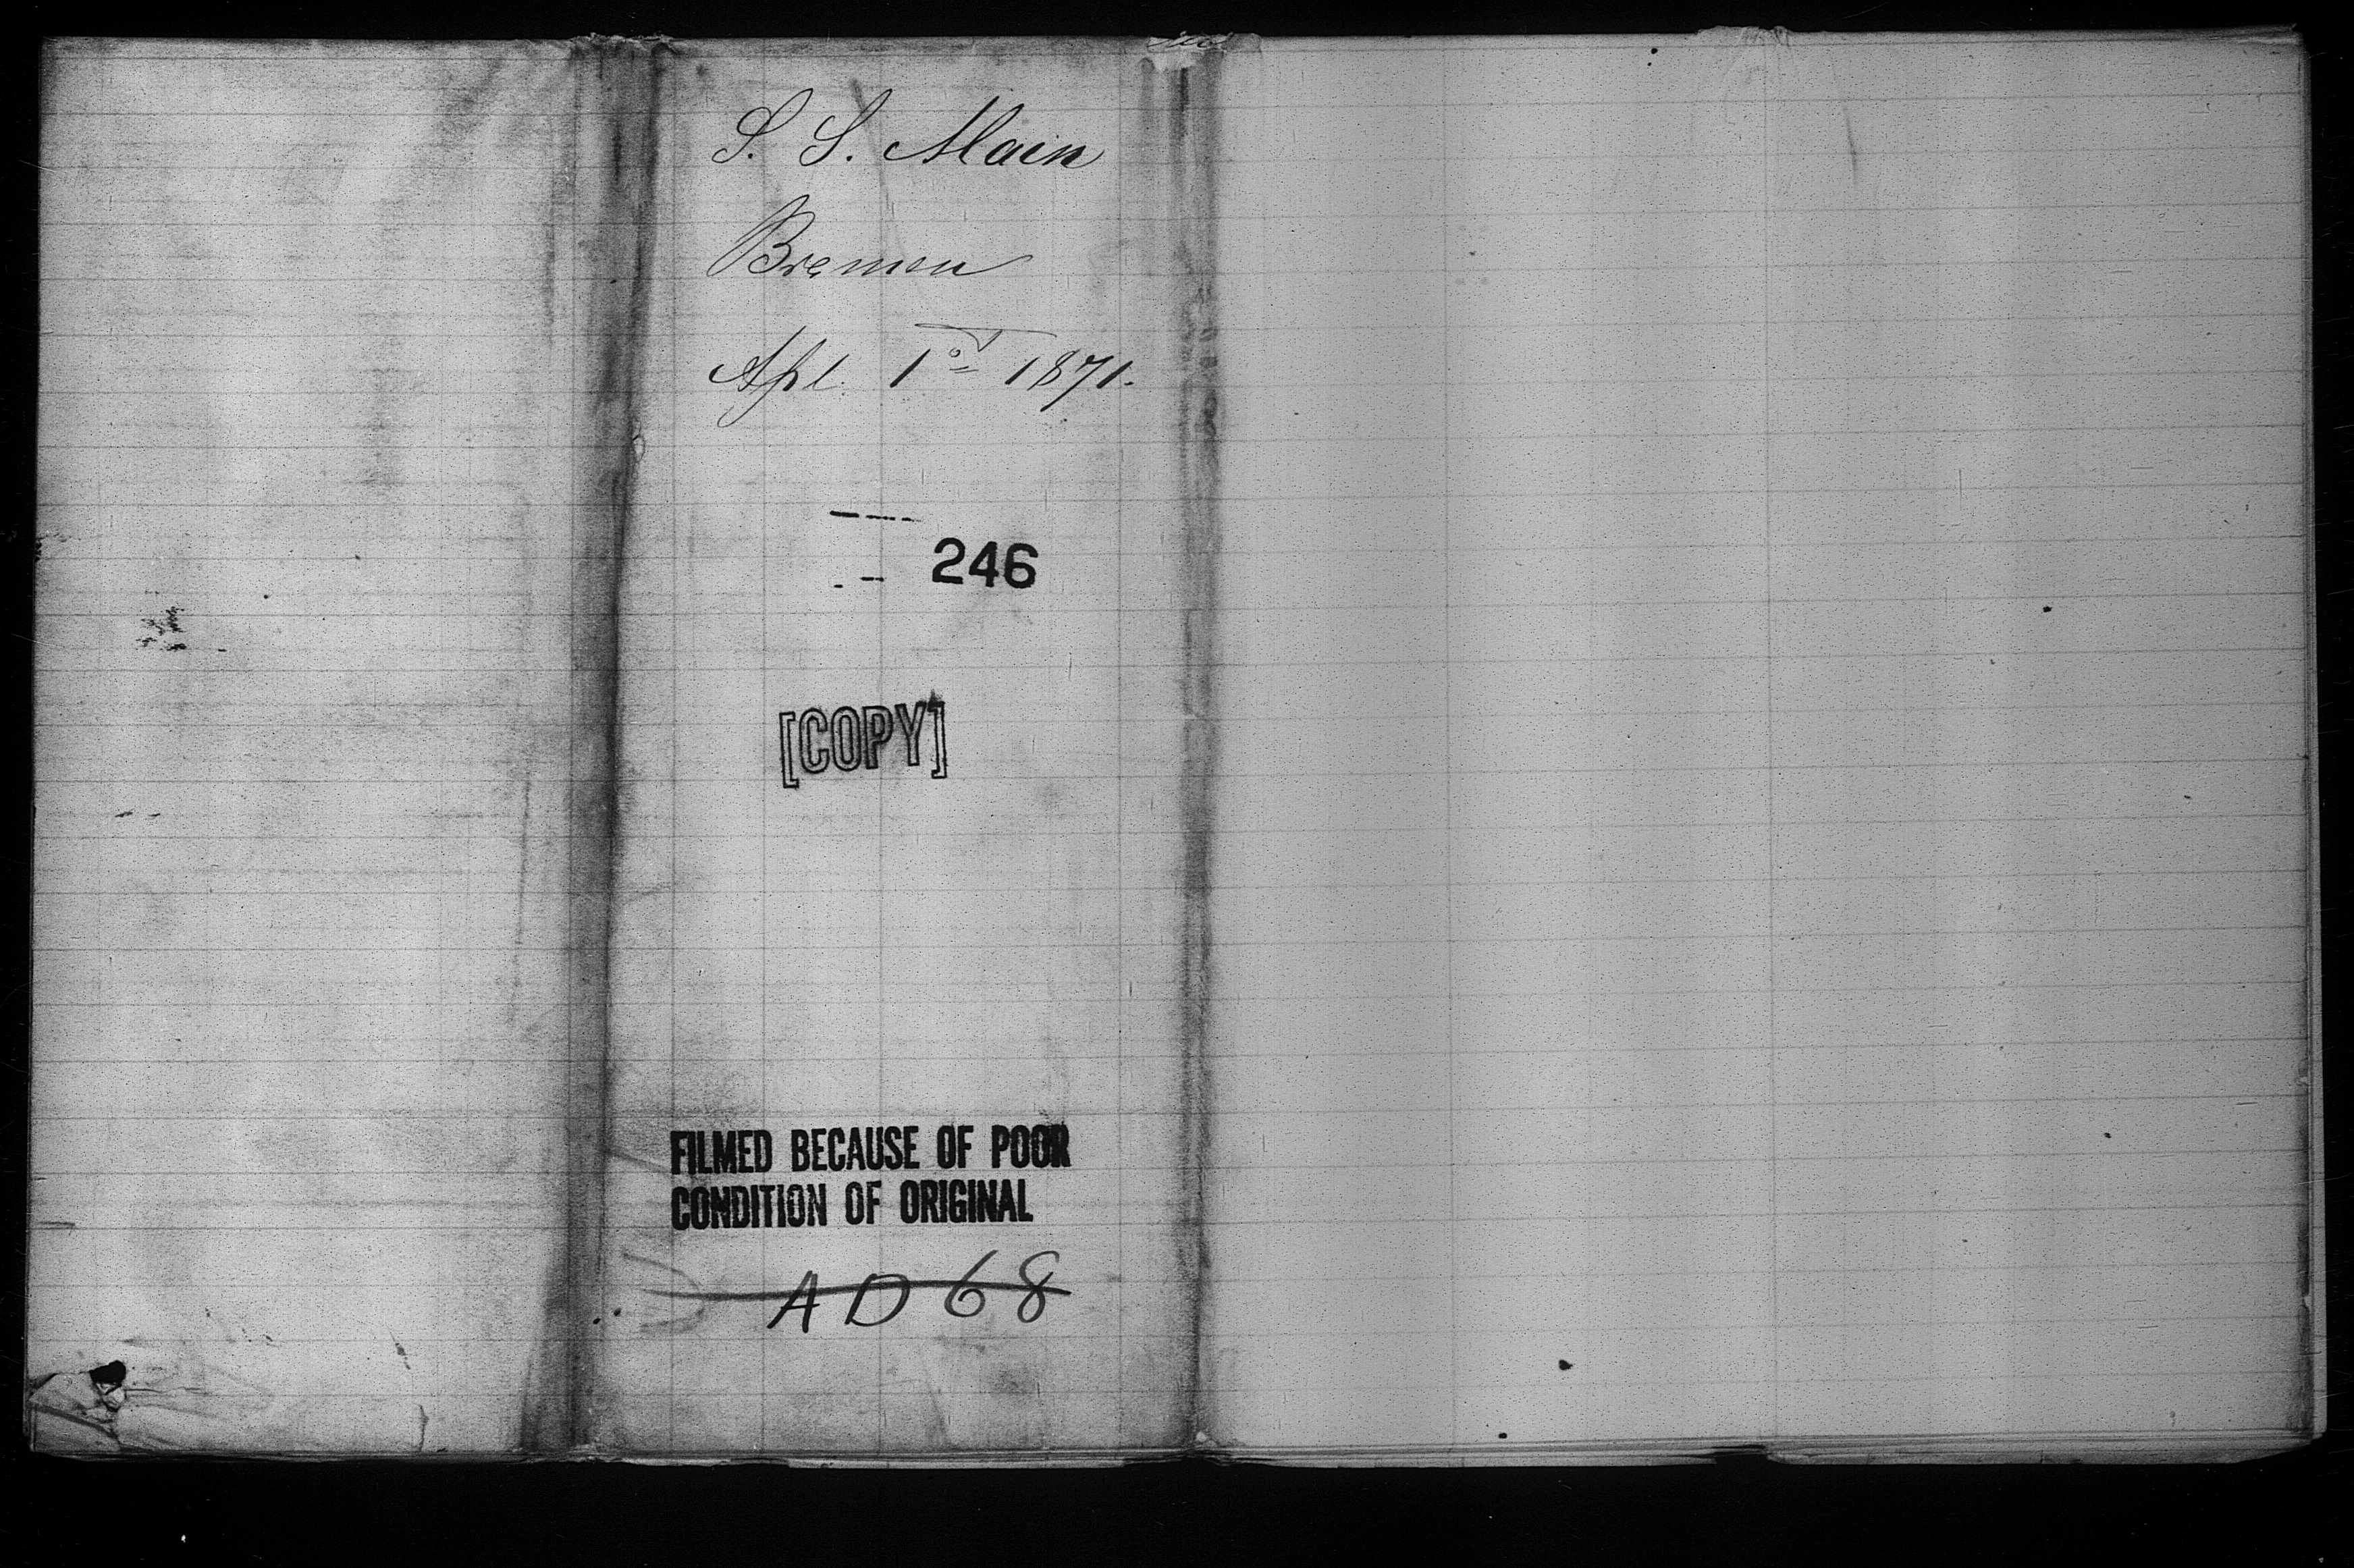 S. S. Main
Bremen
Apl. 1° 1871.
246
[COPY]
FILMED BECAUSE OF POOR
CONDITION OF ORIGINAL
AD 68